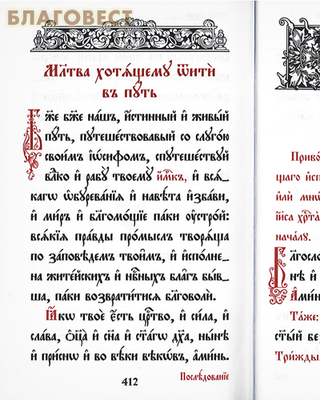 БЛАГОВЕСТ
Мл҃тва хотѧ́щему ѿити́
въ пу́ть
Бж҃е бж҃е на́шъ, и́стинный и҆ живы́й
пꙋтю̀, пꙋтеше́ствовавый со слꙋго́ю
свои́мъ і҆ѡ́сифомъ, спꙋтеше́ствꙋй
влⷣко и҆ рабꙋ̀ твоемꙋ̀ и҆́мⷬ҇къ, и҆ всѧ́-
кагѡ ѡ҆бꙋрева́нїѧ и҆ навѣ́та и҆зба́ви,
и҆ ми́ръ и҆ бл҃гомо́щїе па́ки ᲂу҆стро́й:
всѧ́кїѧ пра́вды про́мыслъ творѧ́ща
по за́повѣдемъ твои̑мъ, и҆ и҆спо́лне-
на жите́йскихъ и҆ нбⷭ҇ныхъ бла̑гъ бы́в-
ша, па́ки возврати́тисѧ бл҃говолѝ.
Ꙗ҆́кѡ твоѐ є҆́сть црⷭ҇тво, и҆ си́ла, и҆
сла́ва, ѻ҆ц҃а̀ и҆ сн҃а и҆ ст҃а́гѡ дх҃а, ны́нѣ
и҆ при́снѡ и҆ во вѣ́ки вѣкѡ́въ, а҆ми́нь.
412
Послѣ́дованїе
Приво́
ща́гѡ и҆сп
и҆лѝ мни́
і҆и҃са хрⷭ҇та̀
нача́лꙋ.
л҃госло
нѣ и҆
А҆ми́н
Та́же:
ст́ый бе́
Три́жды.